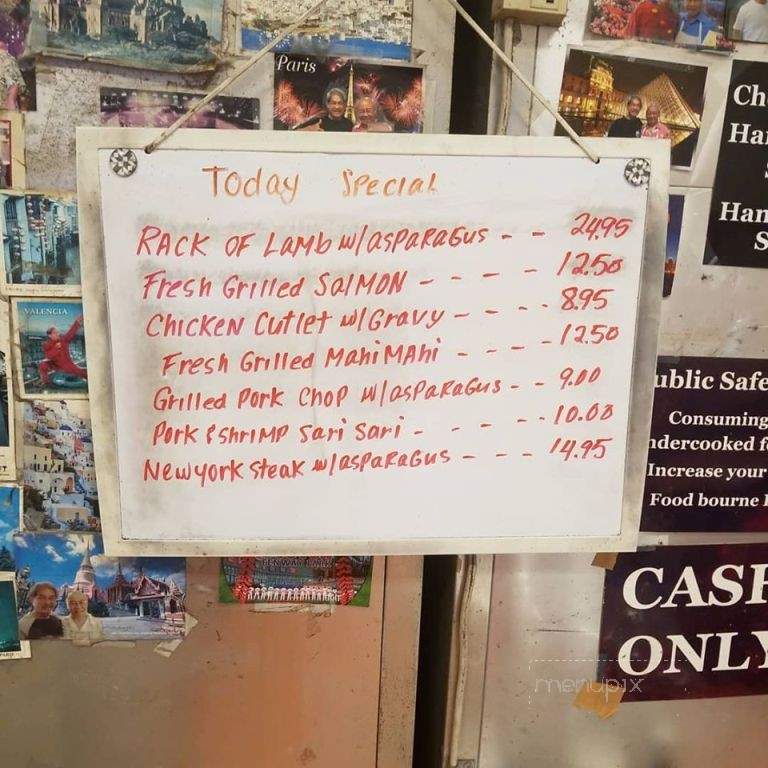 Paris
Today Special
RACK OF LAMb w/aspaRaGus - - 24.95
Fresh Grilled SalMON - - - - 12.50
Chicken Cutlet w/Gravy - - - - 8.95
Fresh Grilled MahiMAhi - - - - 12.50
Grilled Pork Chop w/aspaRaGus - - 9.00
Pork & shriMP Sari Sari - - - - - 10.00
New york steak w/aspaRaGus - - - 14.95
VALENCIA
FENWAY PARK
Ha
Han
S
ublic Safe
Consuming
ndercooked f
Increase your
Food bourne
CASH
ONLY
menupix